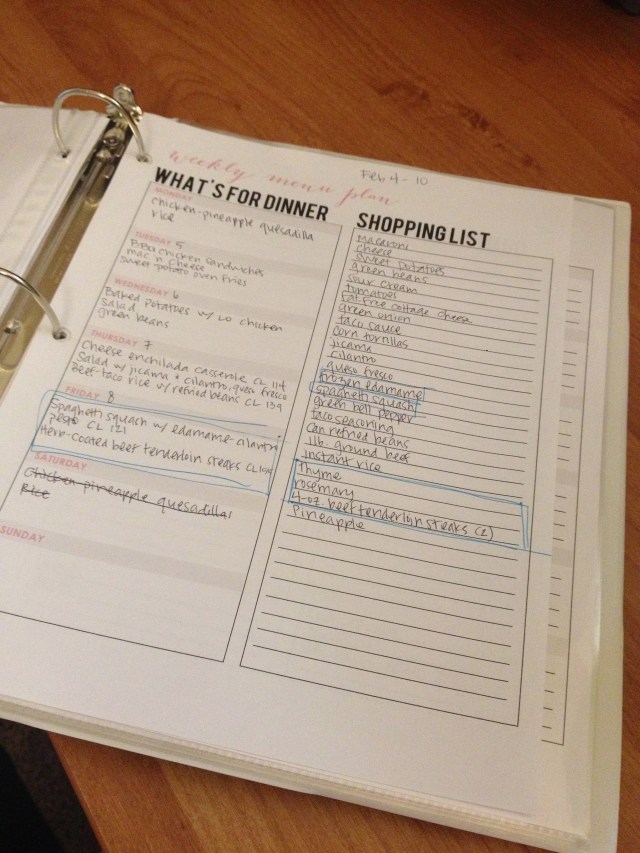 weekly menu plan
Feb 4 - 10
WHAT'S FOR DINNER
MONDAY
chicken-pineapple quesadilla
rice
TUESDAY 5
BBQ chicken sandwiches
mac n cheese
sweet potato oven fries
WEDNESDAY 6
Baked Potatoes w/ LO chicken
salad
green beans
THURSDAY 7
Cheese enchilada casserole CL 114
Salad w/ jicama + cilantro, queso fresco
Beef-taco rice w/ refried beans CL 139
FRIDAY 8
Spaghetti squash w/ edamame-cilantro
pesto CL 121
Herb-coated beef tenderloin steaks CL
SATURDAY
Chicken pineapple quesadilla
Rice
SUNDAY
SHOPPING LIST
Macaroni
cheese
sweet potatoes
green beans
sour cream
tomatoes
fat-free cottage cheese
green onion
taco sauce
corn tortillas
jicama
cilantro
queso fresco
frozen edamame
spaghetti squash
green bell pepper
taco seasoning
can refried beans
1lb. ground beef
instant rice
Thyme
rosemary
4-oz beef tenderloin steaks (2)
Pineapple